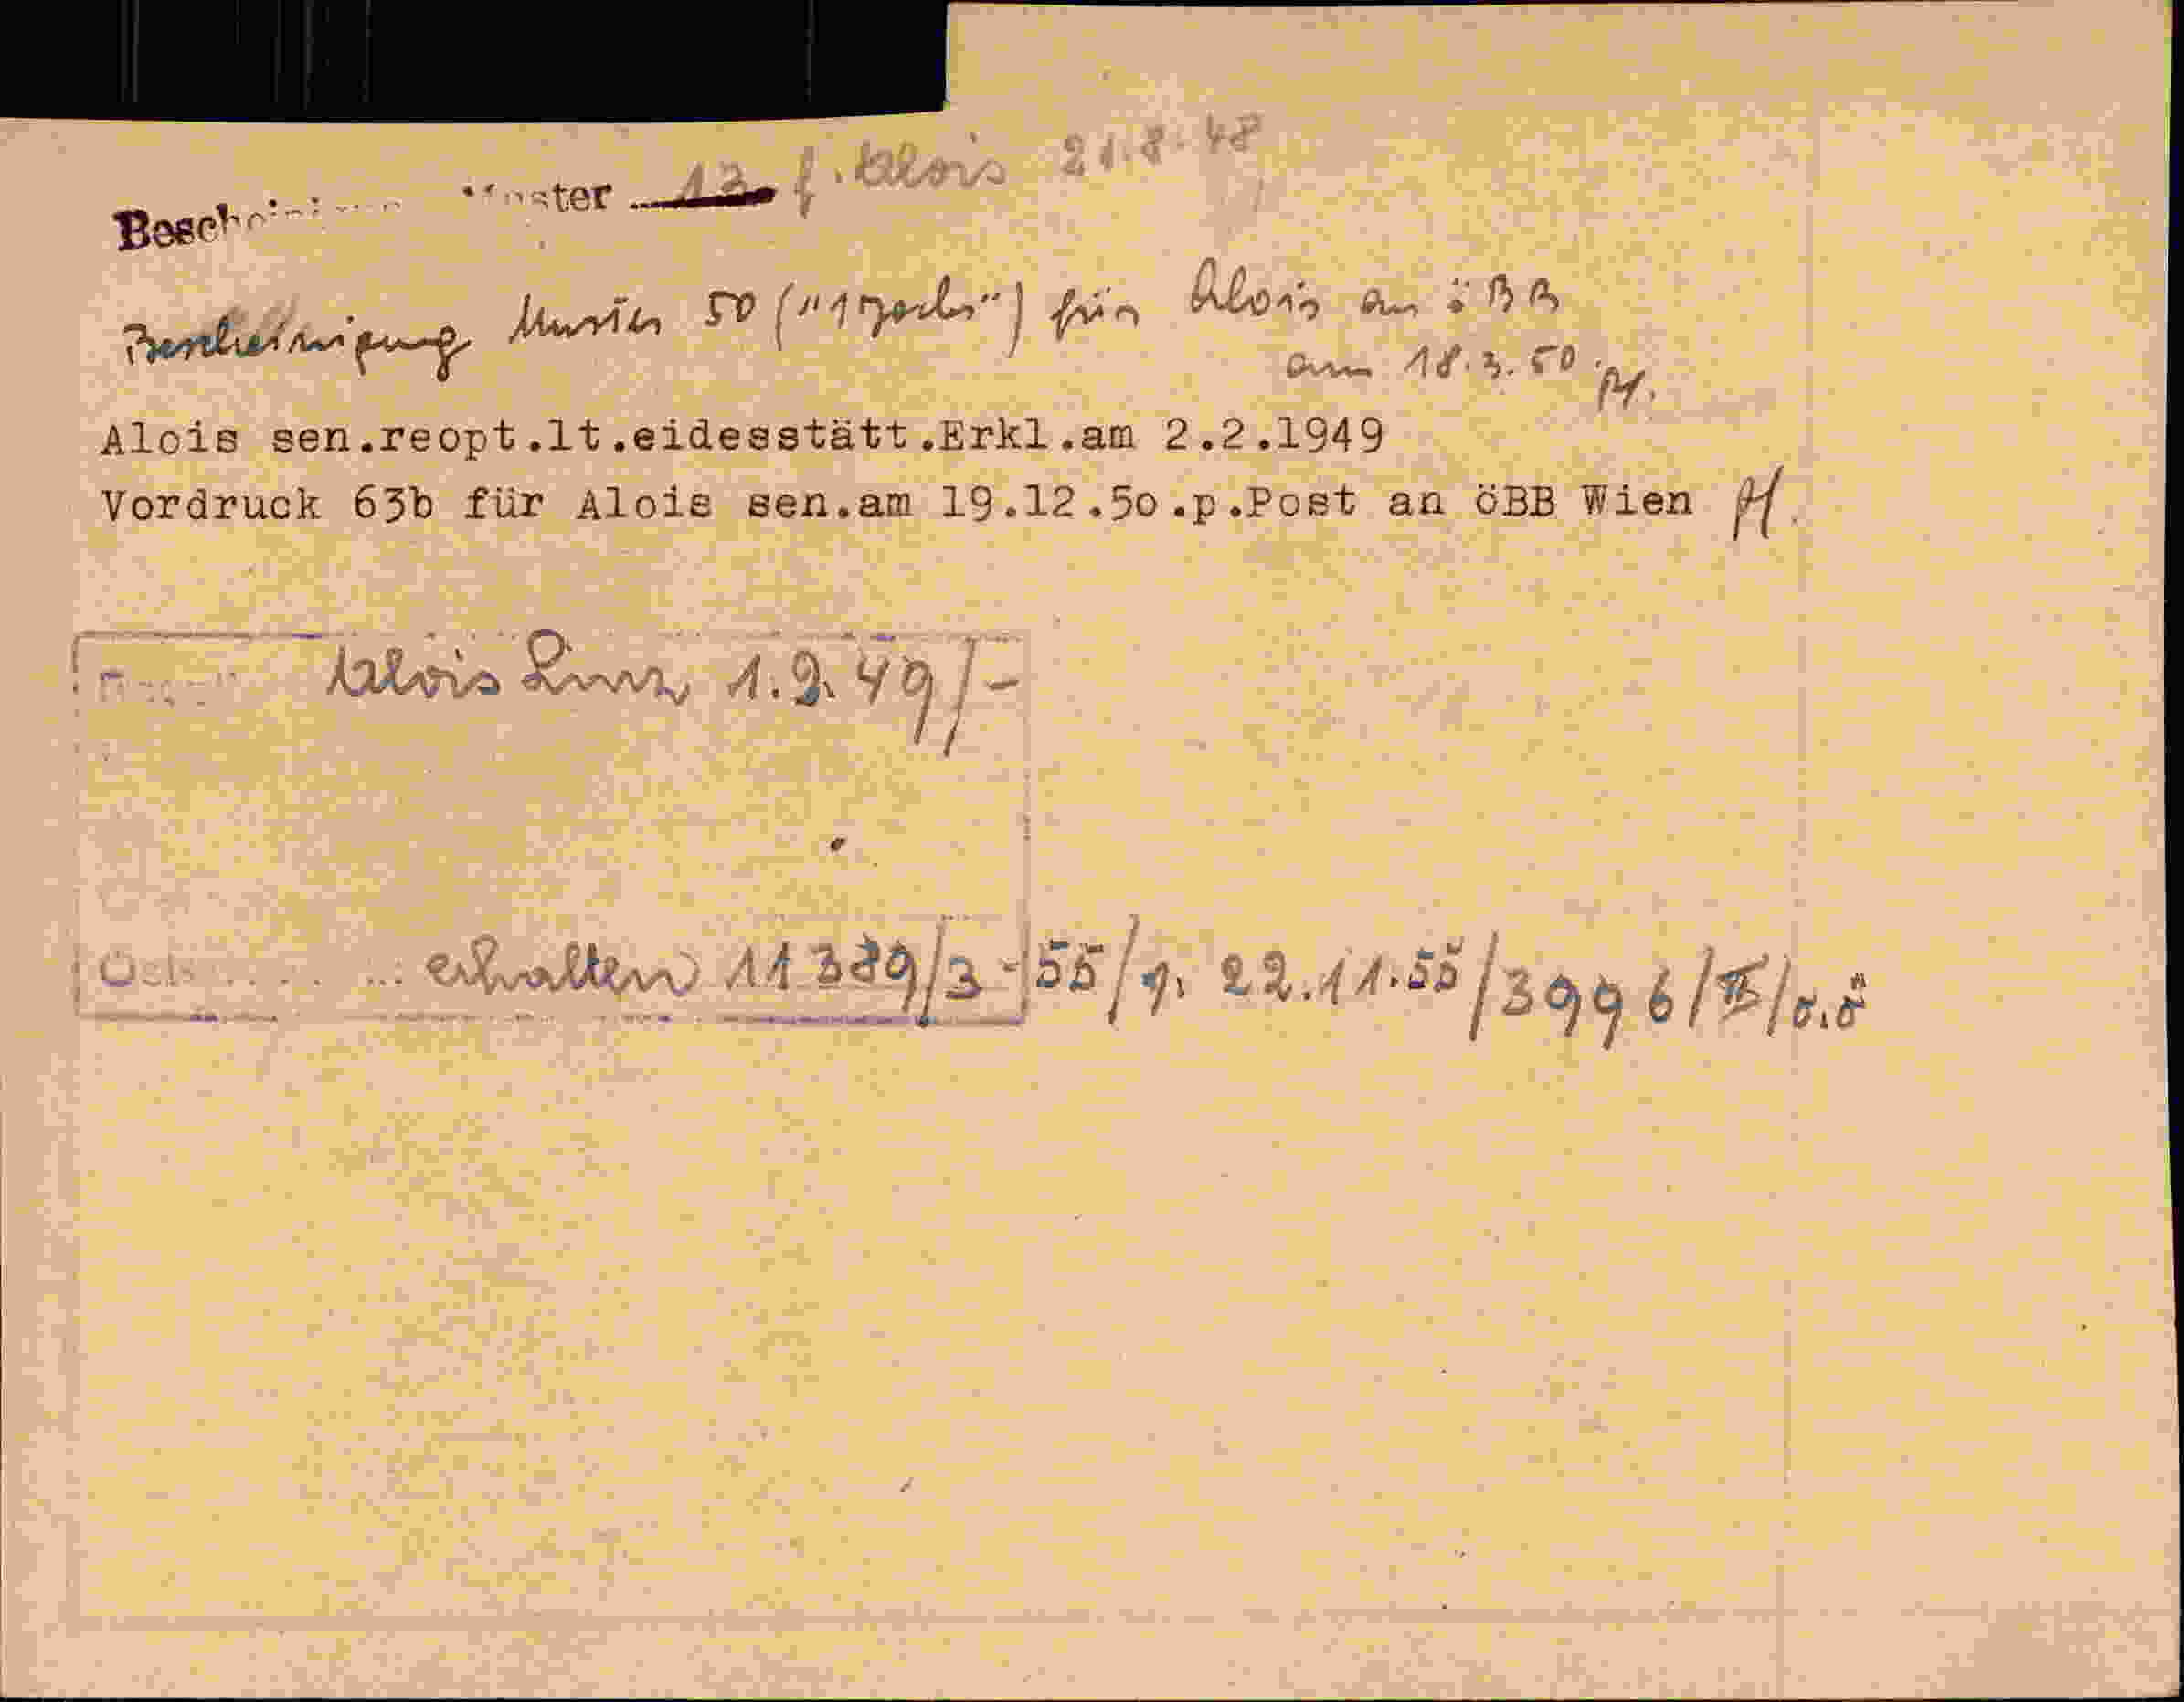 Bescheinigung Muster 13 f. Alois 21.8.48
Bescheinigung Muster 50 ( ) für Alois an öBB
am 18.3.50.
Alois sen.reopt.lt.eidesstätt.Erkl.am 2.2.1949
Vordruck 63b für Alois sen.am 19.12.5o.p.Post an öBB Wien
Alois Linz 1.9.49/-
erhalten 11389/3-55/1. 22.11.55/3996/II/o.ö